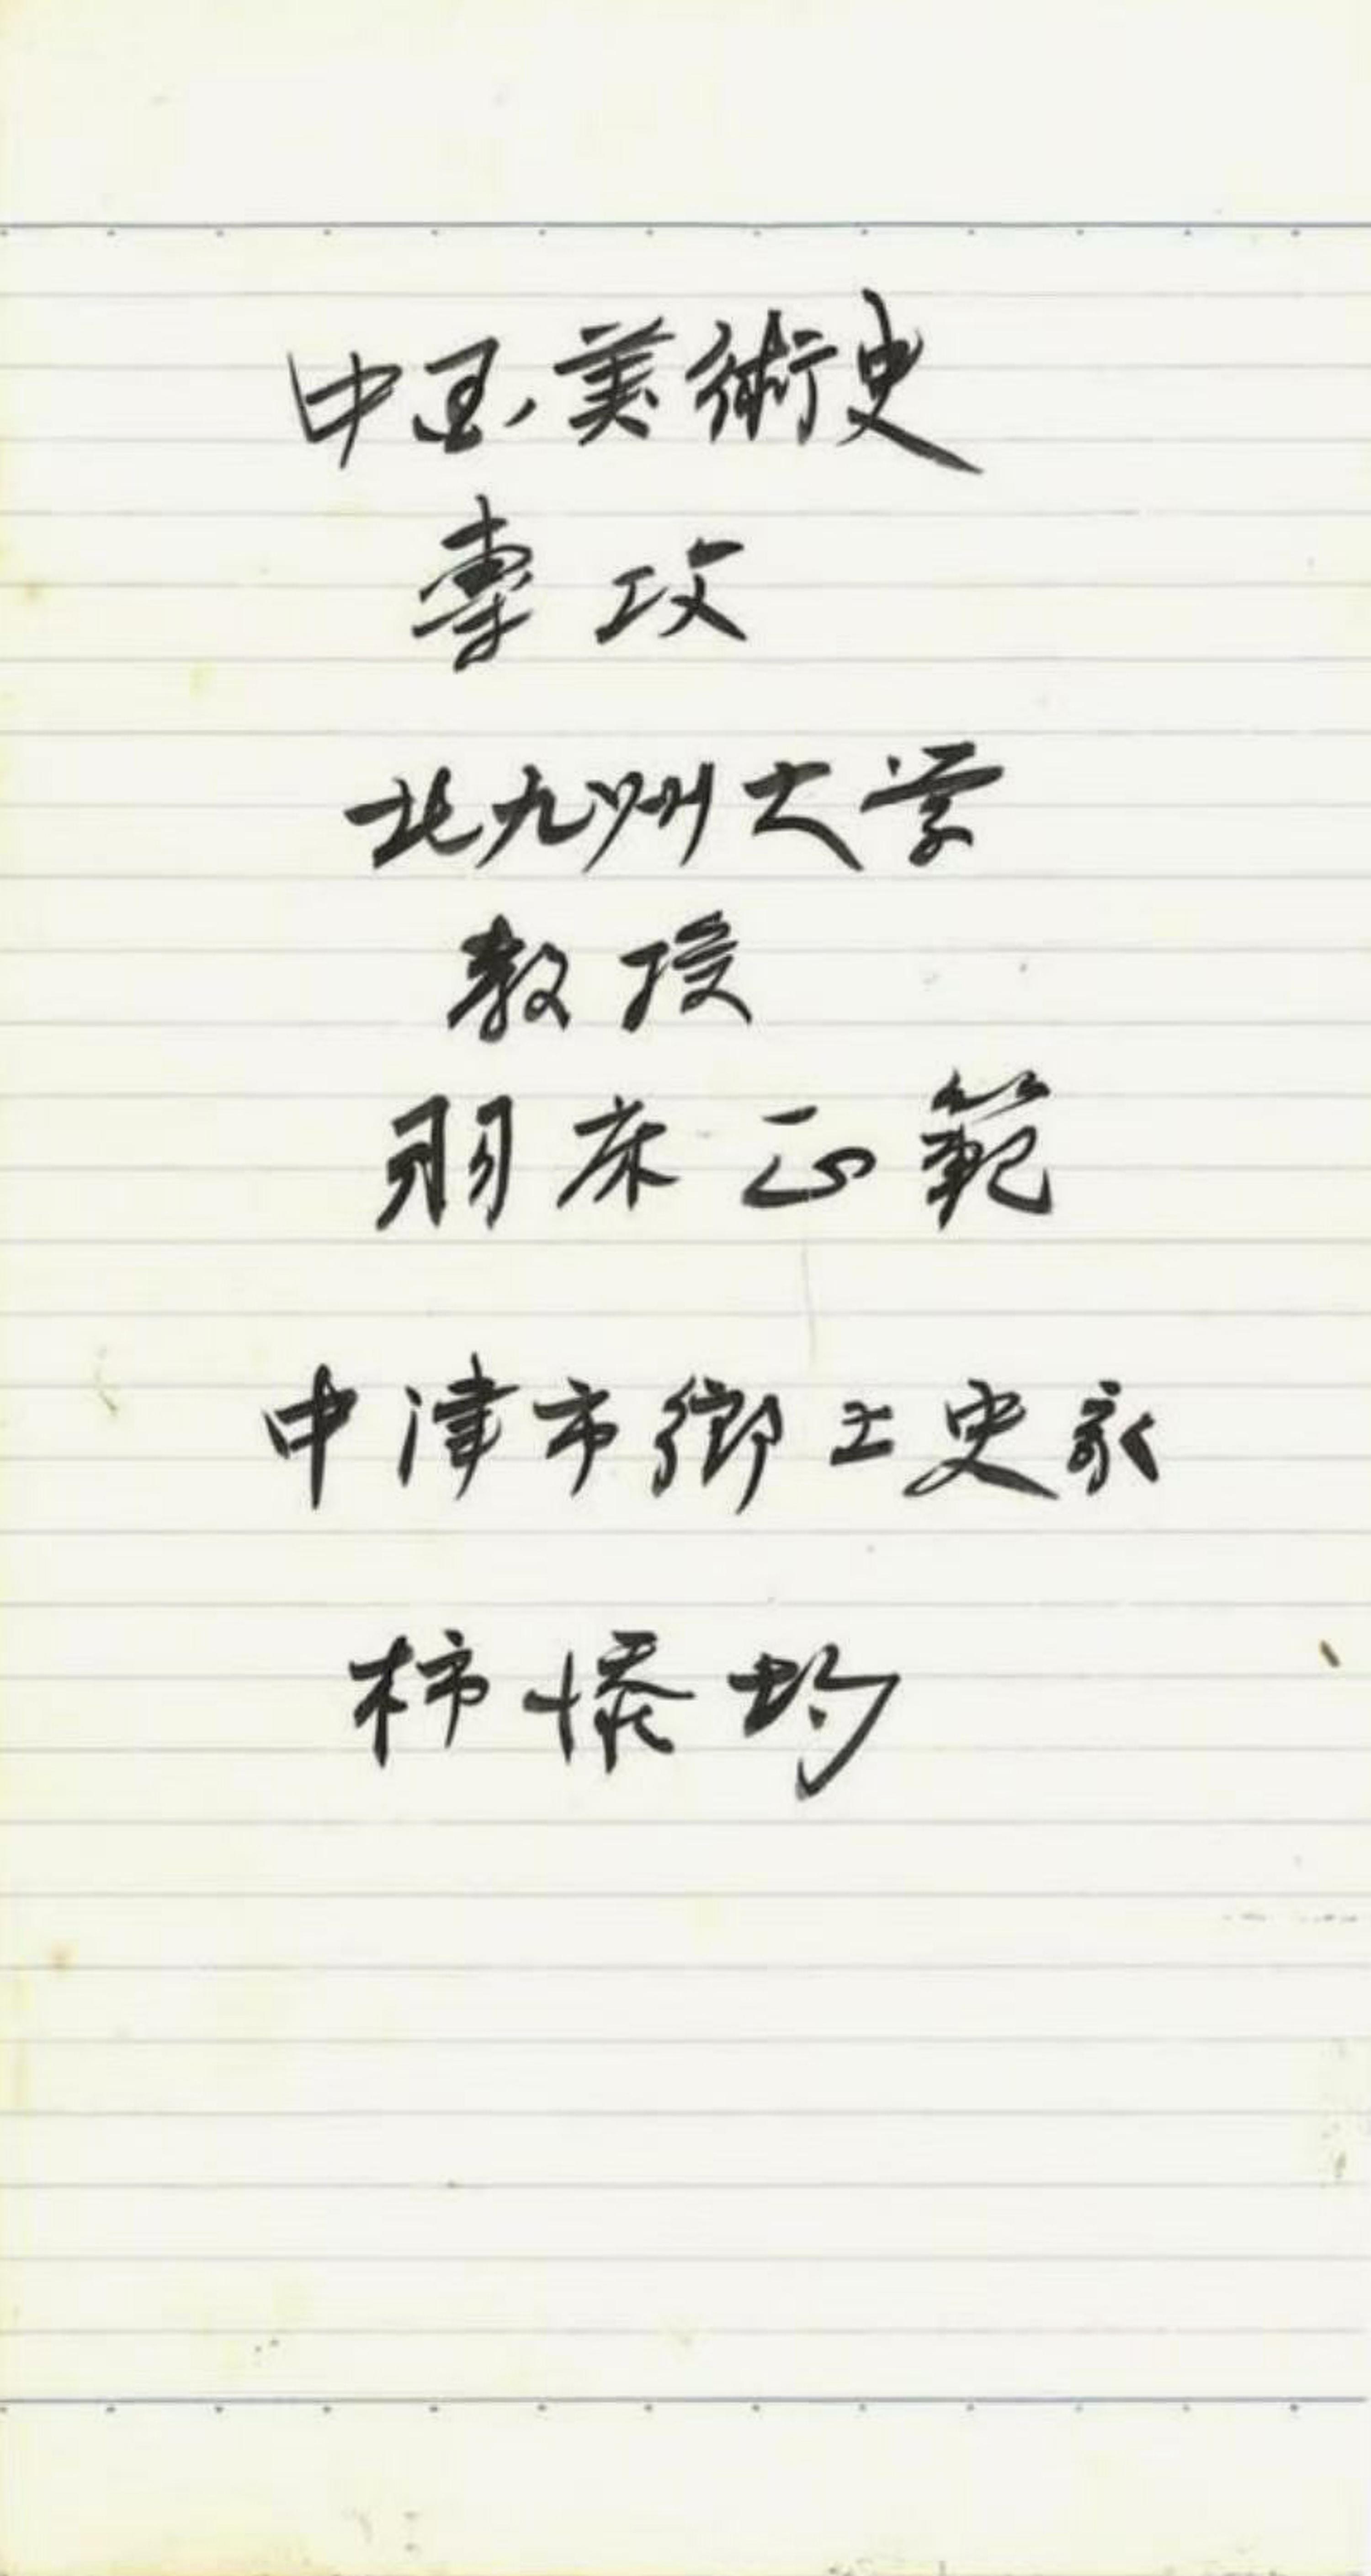 中国美術史
専攻
北九州大学
教授
羽床正範
中津市郷土史家
柿 均